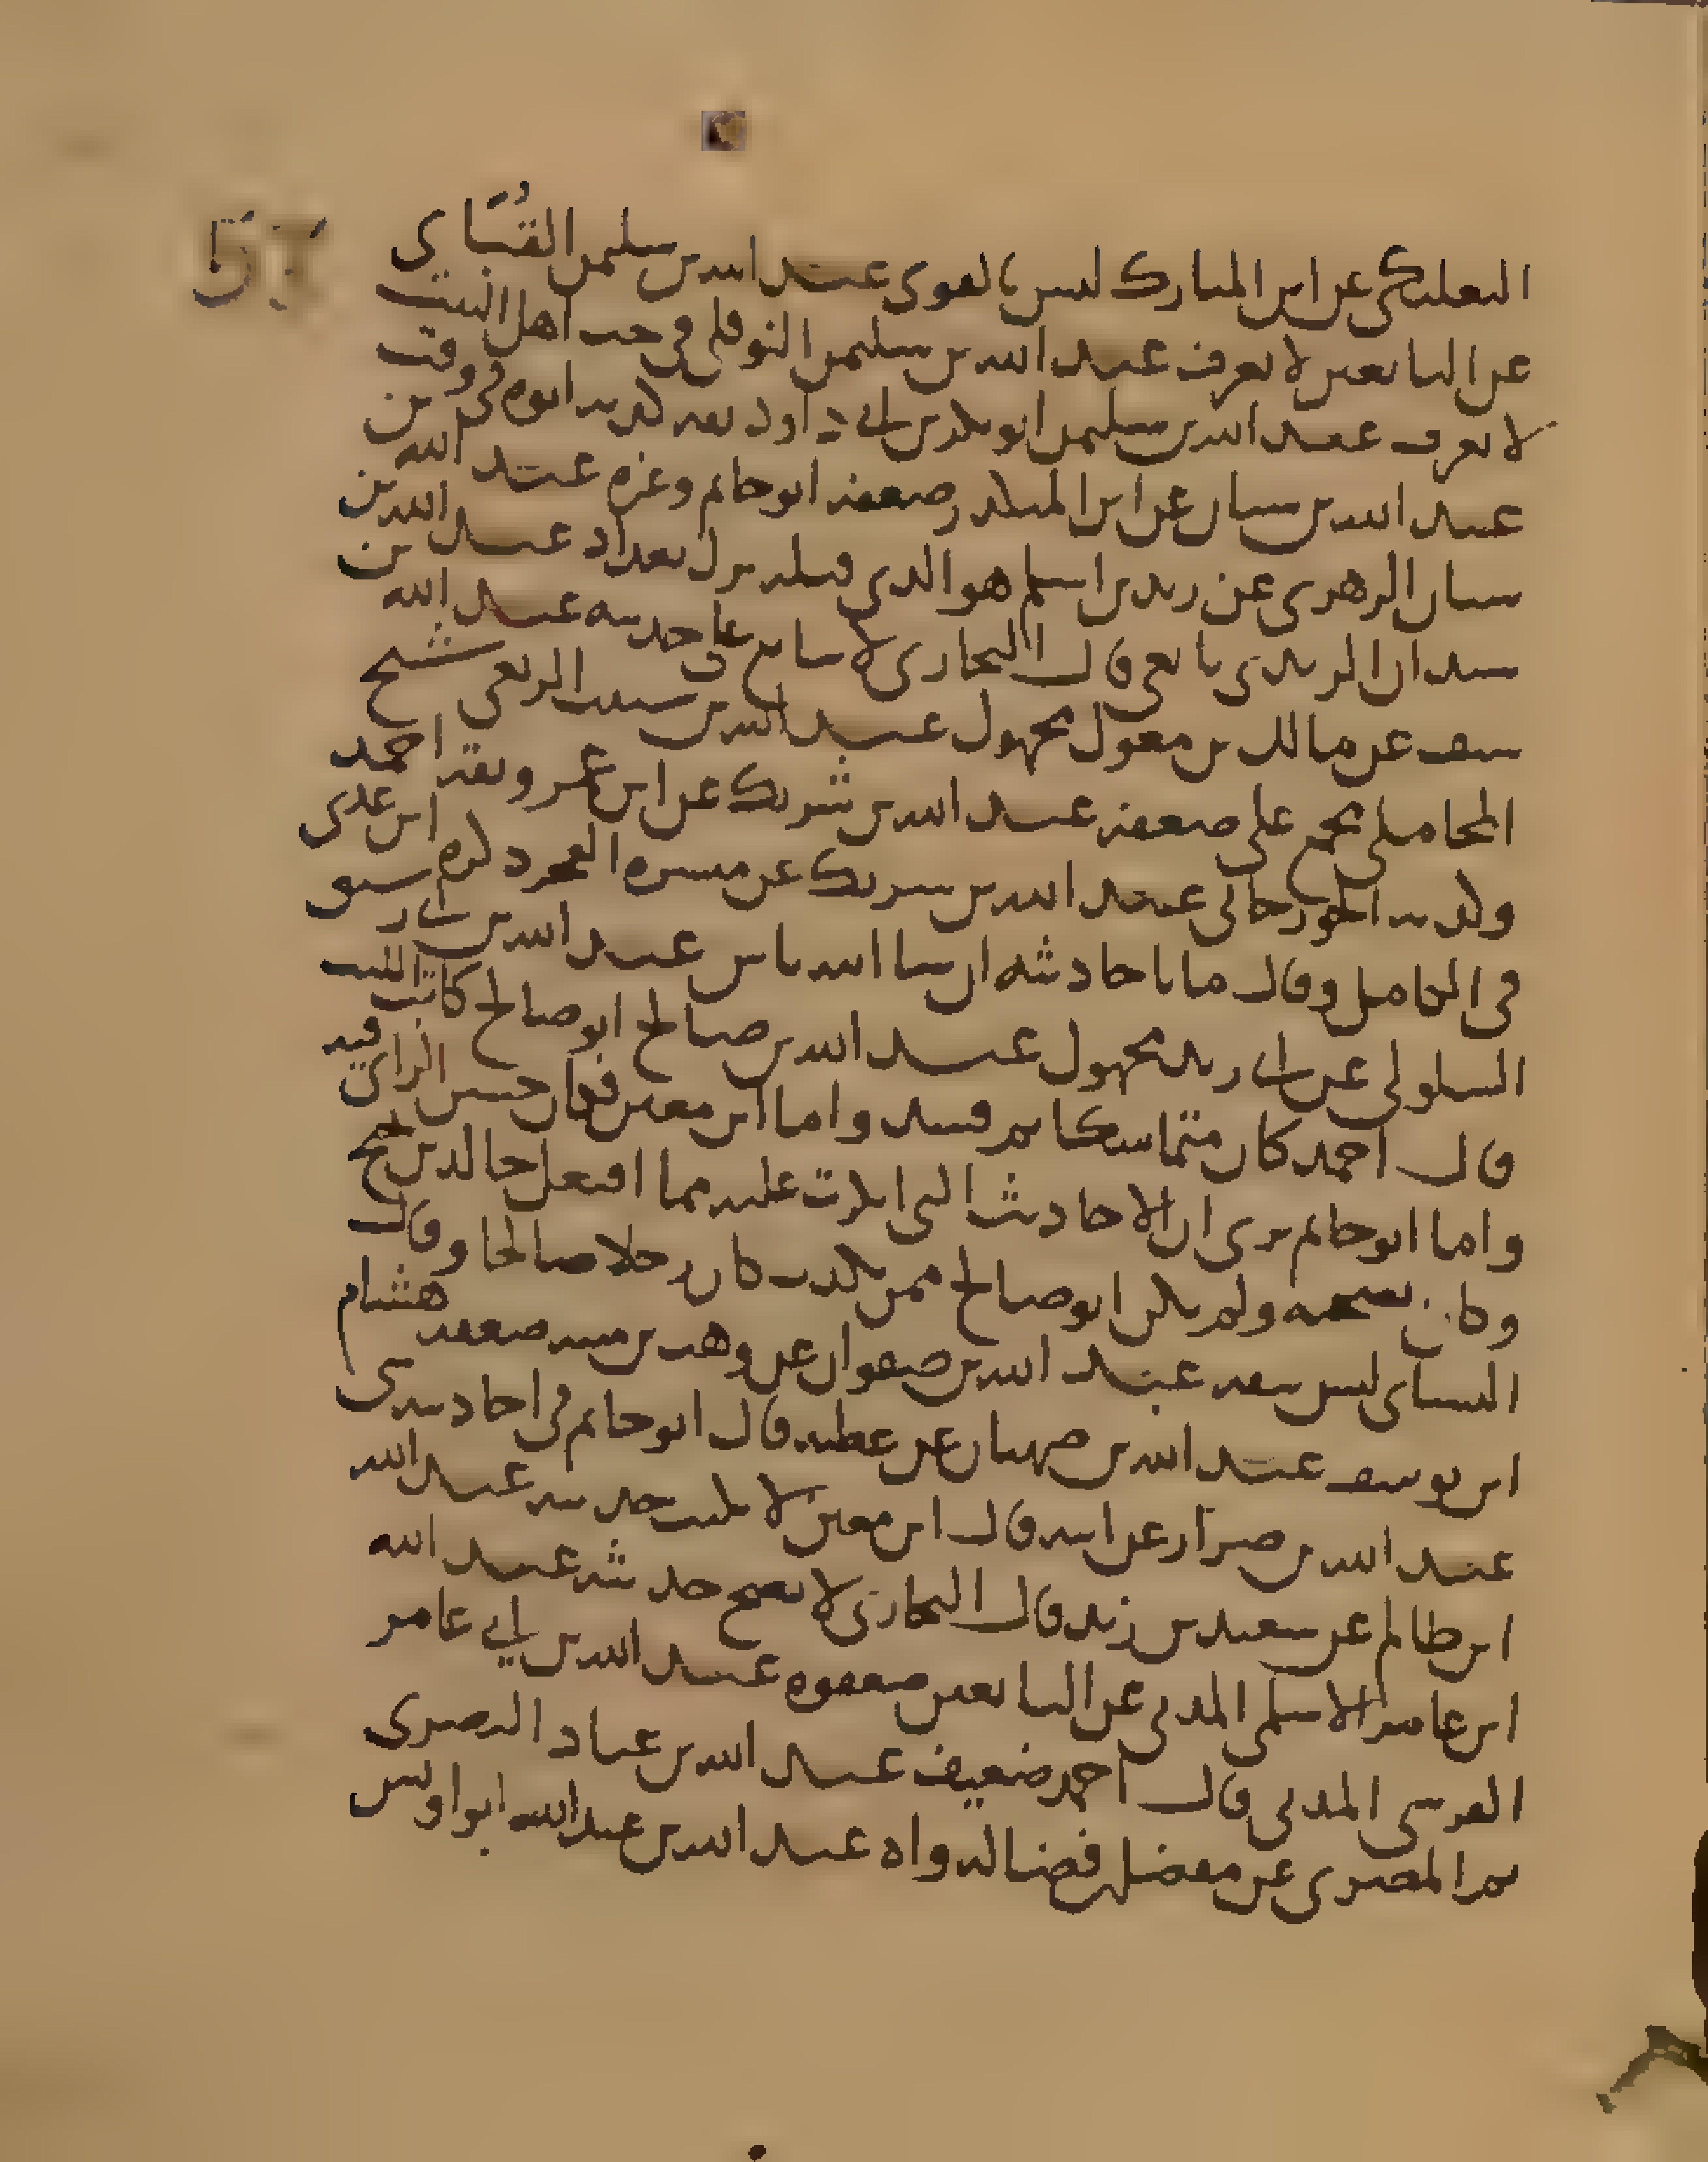 51
البعلبكي عن ابن المبارك ليس بالقوي عبد الله بن سليمن القُبَاي
عن التابعين لا يعرف عبد الله بن سليمن النوفلي في حب اهل البيت
لا يعرف عبد الله بن سليمن ابو بكر بن ابي داود ثقه كذبه ابوه في وقت
عبد الله بن سنان عن ابن المنكدر ضعفه ابو حاتم وغره عبد الله بن
سنان الزهري عن زيد بن اسلم هو الذي قبله نزل بغداد عبد الله بن
سيدان المريدي تابعي قال البخاري لا يتابع على حديثه عبد الله بن
سيف عن مالك بن مغول مجهول عبد الله بن شبيب الربعي شيخ
المحاملي مجمع على ضعفه عبد الله بن شريك عن ابن عمر وثقه احمد
وكذبه الجوزجاني عبد الله بن شريك عن ميسره العمر ذكره ابن عدي
في الكامل وقال ما باحاديثه ان شا الله باس عبد الله بن
السلولي عن ابي زيد مجهول عبد الله بن صالح ابو صالح كاتب الليث
قال احمد كان متماسكا ثم فسد واما ابن معين فكان حسن الراي فيه
واما ابو حاتم يرى ان الاحاديث التي انكرت عليه مما افتعل خالد بن نجيح
وكان يصحبه ولم يكن ابو صالح ممن يكذب كان رجلا صالحا وقال
النساي ليس بثقه عبد الله بن صفوان عن وهب بن منبه ضعفه هشام
ابن يوسف عبد الله بن صهبان عن عطيه قال ابو حاتم في احاديثه شي
عبد الله بن ضرار عن ابيه قال ابن معين لا يكتب حديثه عبد الله
ابن ظالم عن سعيد بن زيد قال البخاري لا يصح حديثه عبد الله
ابن عامر الاسلمي المدني عن التابعين ضعفوه عبد الله بن ابي عامر
القرشي المدني قال احمد ضعيف عبد الله بن عباد البصري
ثم المصري عن مفضل بن فضاله واه عبد الله بن عبد الله ابو اويس